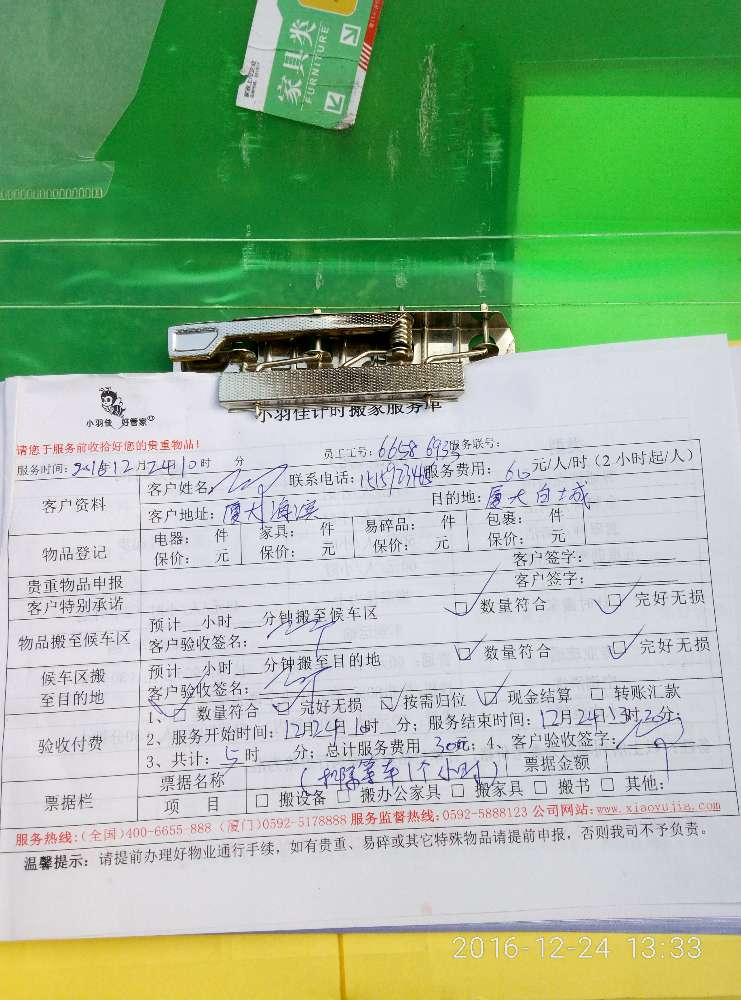 家具类
FURNITURE
小羽佳 好管家
小羽佳计时搬家服务单
请您于服务前收拾好您的贵重物品!
员工工号: 6658 693 服务联号:
服务时间: 2016年12月24日10时 分
客户资料
客户姓名: 联系电话: 服务费用: 60元/人/时(2小时起/人)
客户地址: 厦大海滨 目的地: 厦大白城
物品登记
电器: 件 家具: 件 易碎品: 件 包裹: 件
保价: 元 保价: 元 保价: 元 保价: 元
贵重物品申报 客户签字:
客户特别承诺 客户签字:
物品搬至候车区
预计 小时 分钟搬至候车区
客户验收签名: 数量符合 完好无损
候车区搬
至目的地
预计 小时 分钟搬至目的地
客户验收签名: 数量符合 完好无损
验收付费
1、 数量符合 完好无损 按需归位 现金结算 转账汇款
2、服务开始时间: 12月24日10时 分; 服务结束时间: 12月24日13时30分;
3、共计: 5时 分; 总计服务费用 300元; 4、客户验收签字:
票据栏
票据名称 (扣除等车1个小时) 票据金额
项 目 搬设备 搬办公家具 搬家具 搬书 其他:
服务热线:(全国)400-6655-888 (厦门)0592-5178888 服务监督热线:0592-5888123 公司网站:www.xiaoyujia.com
温馨提示: 请提前办理好物业通行手续,如有贵重、易碎或其它特殊物品请提前申报,否则我司不予负责。
2016-12-24 13:33